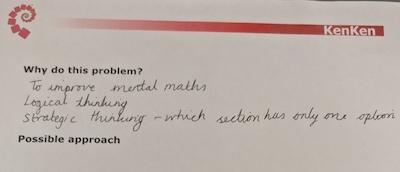 KenKen
Why do this problem?
To improve mental maths
Logical thinking
Strategic thinking - which section has only one option
Possible approach